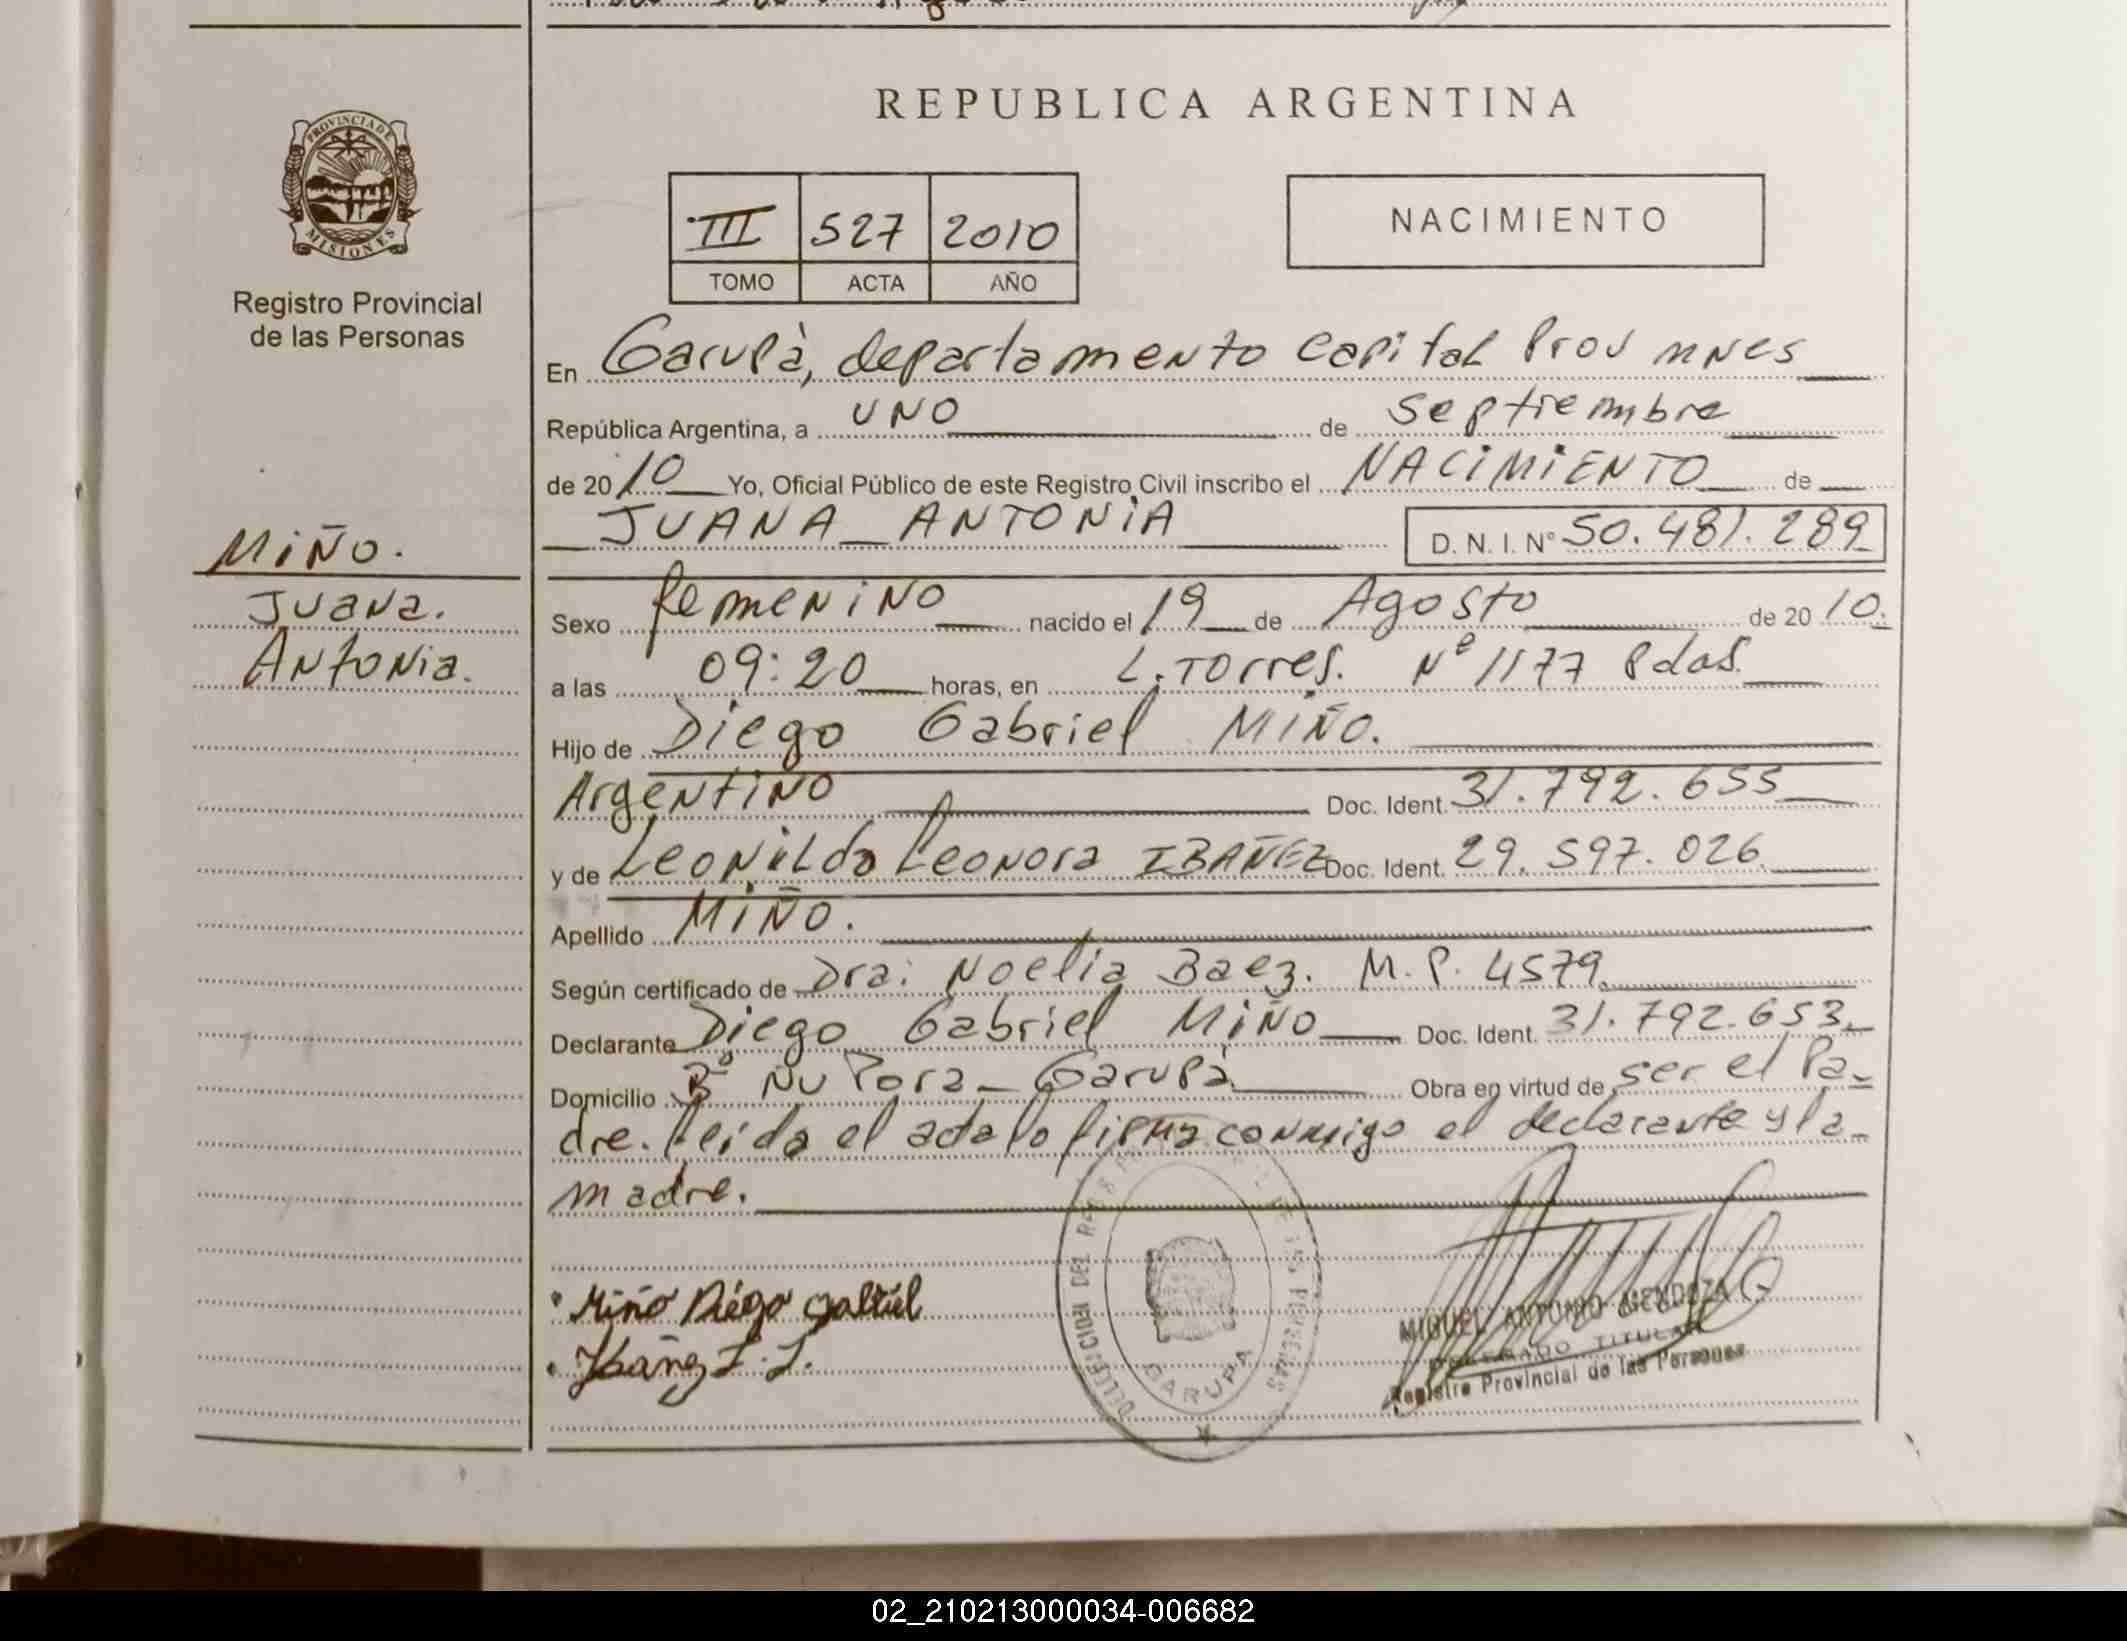 REPUBLICA ARGENTINA
PROVINCIA DE
MISIONES
Registro Provincial
de las Personas
III 527 2010
TOMO ACTA AÑO
NACIMIENTO
En Garupà, departamento Capital Prov mnes
República Argentina, a UNO de Septiembre
de 20 10 Yo, Oficial Público de este Registro Civil inscribo el NACIMIENTO de
JUANA ANTONIA D. N. I. Nº 50.481.289
MIÑO.
Juana.
Antonia.
Sexo femenino nacido el 19 de Agosto de 20 10.
a las 09:20 horas, en L. Torres. Nº 1177 Pdas.
Hijo de Diego Gabriel MIÑO.
Argentino Doc. Ident. 31.792.653
y de Leonilda Leonora IBAÑEZ Doc. Ident. 29.597.026
Apellido MIÑO.
Según certificado de Dra: Noelia Baez. M.P. 4579
Declarante Diego Gabriel MIÑO Doc. Ident. 31.792.653
Domicilio Bº Ñu Pora - Garupà Obra en virtud de ser el Pa-
dre. leida el acta lo firma conmigo el declarante y la
madre.
Miño Diégo Gabriel
Ibañez L. L.
GARUPA
MIGUEL ANTONIO MENDOZA
DELEGADO TITULAR
Registro Provincial de las Personas
02_210213000034-006682